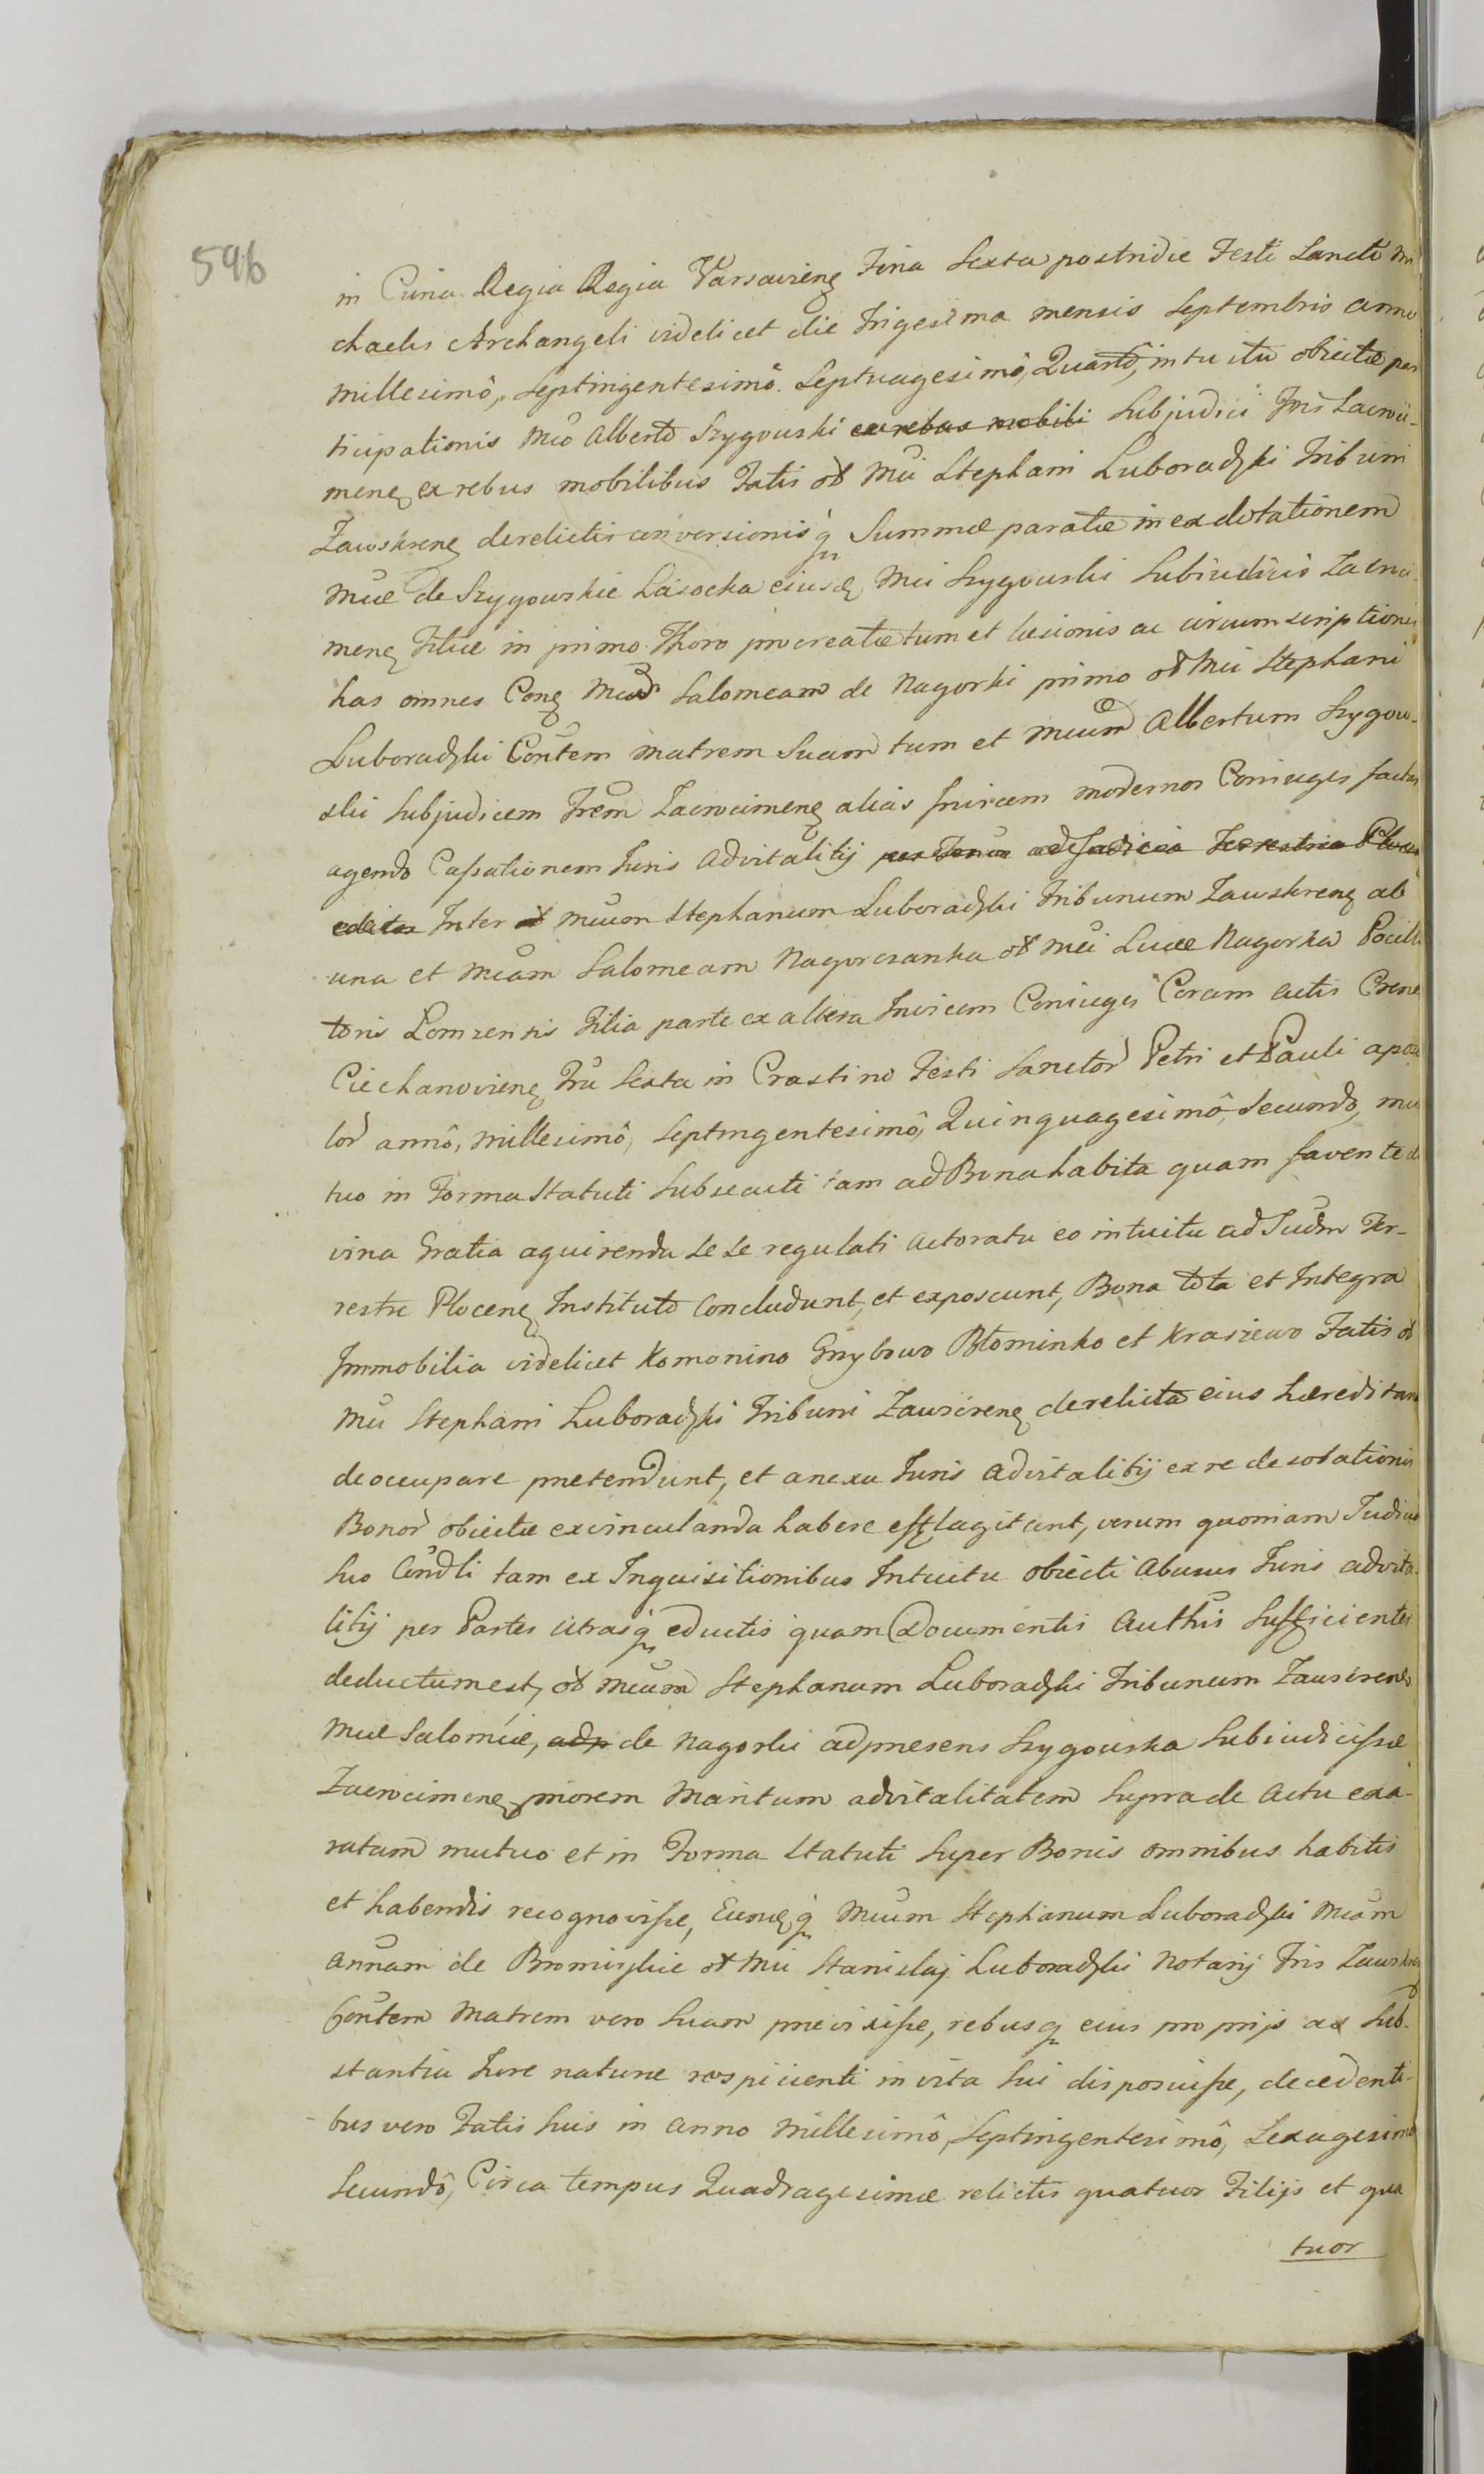 596
in Curia Regia Regia Varsavien̄ Feria Sexta postridie Festi Sancti Mi
chaelis Archangeli videlicet die Trigesima mensis Septembris anno
millesimô, Septingentesimô. Septuagesimô, Quartô, intuitu obiectæ par
ticipationis Mco Alberto Szygowski ex rebus mobili Subjudici Tris Zacroci-
menȩ ex rebus mobilibus Fatis ol Mci Stephani Luboradzki Tribuni
Zawskrenȩ derelictis conversionisq̀ Summæ paratæ in exdotationem
Mcæ de Szygowskie Lasocka eiusdȩ Mci Szygowski Subiudicis Zacroci-
menȩ Filiæ in primo Thoro procreatæ tum et læsionis ac circumscriptionis
has omnes Conȩ Mcam Salomeam de Nagorki primo ol Mci Stephani
Luboradzki Contem matrem Suam tum et Mcum Albertum Szygow-
ski Subjudicem Trem Zacrocimenȩ alias Invicem modernos Coniuges factas
agendo Cassationem Juris Advitalitij per Terras ad Judicia Terrestria Plocen
edita Inter ol Mcum Stephanum Luboradzki Tribunum Zawskrenȩ ab
una et Mcam Salomeam Nagorczanka ol Mci Lucæ Nagorka Pocilla
toris Lomzensis Filia parte ex altera Invicem Coniuges Coram actis Crene
Ciechanovienȩ Fria Sexta in Crastino Festi Sanctor Petri et Pauli apos
lor annô, millesimô, Septingentesimô, Quinquagesimô Secundo, mu
tuo in Forma Statuti Subsecuti tam ad Bona habita quam favente di
vina Gratia aquirenda se se regulati actoratu eo intuitu ad Judm Ter-
restre Plocenȩ Instituto Concludunt, et exposcunt, Bona tota et Integra
Immobilia videlicet Komonino Grzybowo Błominko et Krasiewo Fatis ol
Mci Stephani Luboradzki Tribuni Zauscirenȩ derelicta eius hæreditaria
deoccupare pretendunt, et anexu Juris Advitalitij ex re desolationis
Bonor obiectæ exvinculanda habere efflagitant, verum quoniam Judicio
huo Condli tam ex Inquisitionibus Intuitu obiecti Abusus Juris advita-
litij per Partes utrasq̀ eductis quam Documentis Authis Sufficienter
deductum est, ol Mcum Stephanum Luboradzki Tribunum Zauscrenȩ
Mcæ Salomeæ, adp de Nagorki adpresens Szygowska Subiudicissæ
Zacrocimenȩ priorem Maritum advitalitatem Supra de actu exa-
ratam mutuo et in Forma Statuti Super Bonis omnibus habitis
et habendis recognovisse, Eundȩq̀ Mcum Stephanum Luboradzki Mcam
Annam de Bromirskie ol Mci Stanislaj Luboradzki Notarij Tris Zawskren
Contem Matrem vero Suam prævixisse, rebusq̀ eius proprijs ac Sub-
stantia Jure naturæ respicienti in vita sui disposuisse, decedenti-
bus vero Fatis suis in anno Millesimô, Septingentesimô, Sexagesimô
Secundô, Circa tempus Quadragesimæ relictis quatuor Filijs et qua
tuor